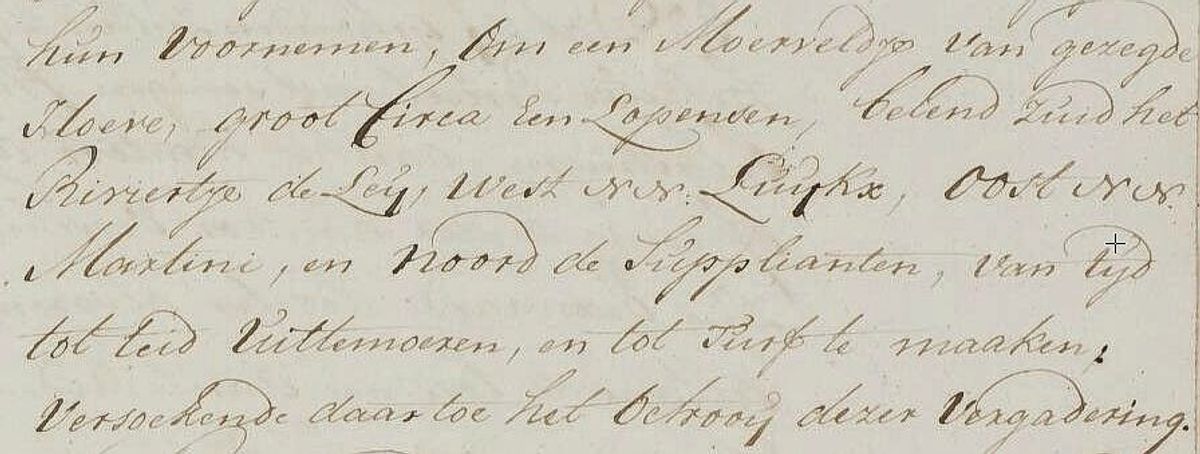 hun voornemen, om een Moerveldje van gezegde
Hoeve, groot Circa Een Lopensen, belend Zuid het
Riviertje de Leij, West N: N: Luijkx, Oost N: N:
Martini, en Noord de Supplianten, van tijd
tot teid Uittemoeren, en tot Turf te maaken;
Versoekende daartoe het Octrooij dezer Vergadering.